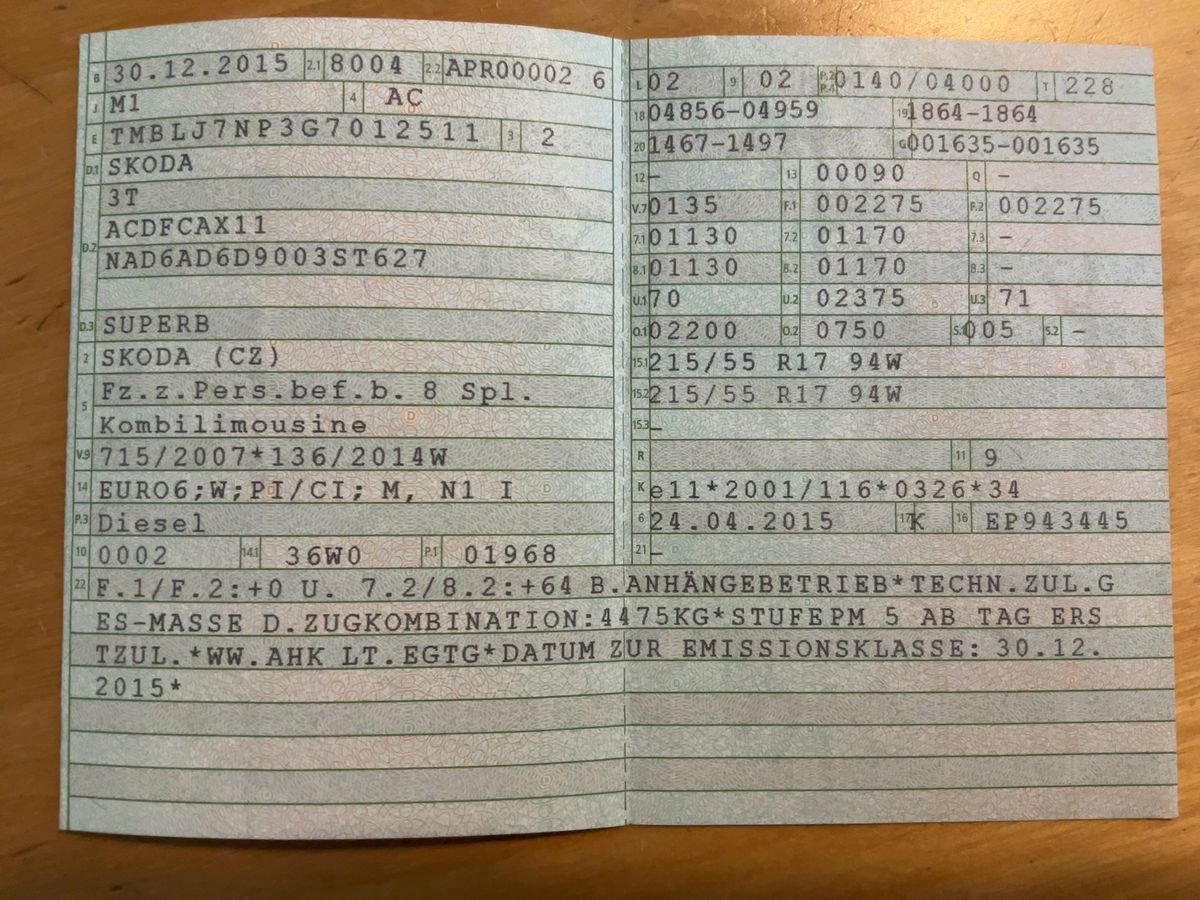 B 30.12.2015 2.1 8004 2.2 APR00002 6
J M1 4 AC
E TMBLJ7NP3G7012511 3 2
D.1 SKODA
3T
ACDFCAX11
D.2
NAD6AD6D9003ST627
D.3 SUPERB
2 SKODA (CZ)
Fz.z.Pers.bef.b. 8 Spl.
5
Kombilimousine
V.9 715/2007*136/2014W
14 EURO6;W;PI/CI; M, N1 I
P.3 Diesel
10 0002 14.1 36W0 P.1 01968
L 02 9 02 P.2/P.4 0140/04000 T 228
18 04856-04959 19 1864-1864
20 1467-1497 G 001635-001635
12 – 13 00090 Q –
V.7 0135 F.1 002275 F.2 002275
7.1 01130 7.2 01170 7.3 –
8.1 01130 8.2 01170 8.3 –
U.1 70 U.2 02375 U.3 71
O.1 02200 O.2 0750 S.1 005 S.2 –
15.1 215/55 R17 94W
15.2 215/55 R17 94W
15.3 –
R 11 9
K e11*2001/116*0326*34
6 24.04.2015 17 K 16 EP943445
21 –
22 F.1/F.2:+0 U. 7.2/8.2:+64 B.ANHÄNGEBETRIEB*TECHN.ZUL.G
ES-MASSE D.ZUGKOMBINATION:4475KG*STUFEPM 5 AB TAG ERS
TZUL.*WW.AHK LT.EGTG*DATUM ZUR EMISSIONSKLASSE: 30.12.
2015*